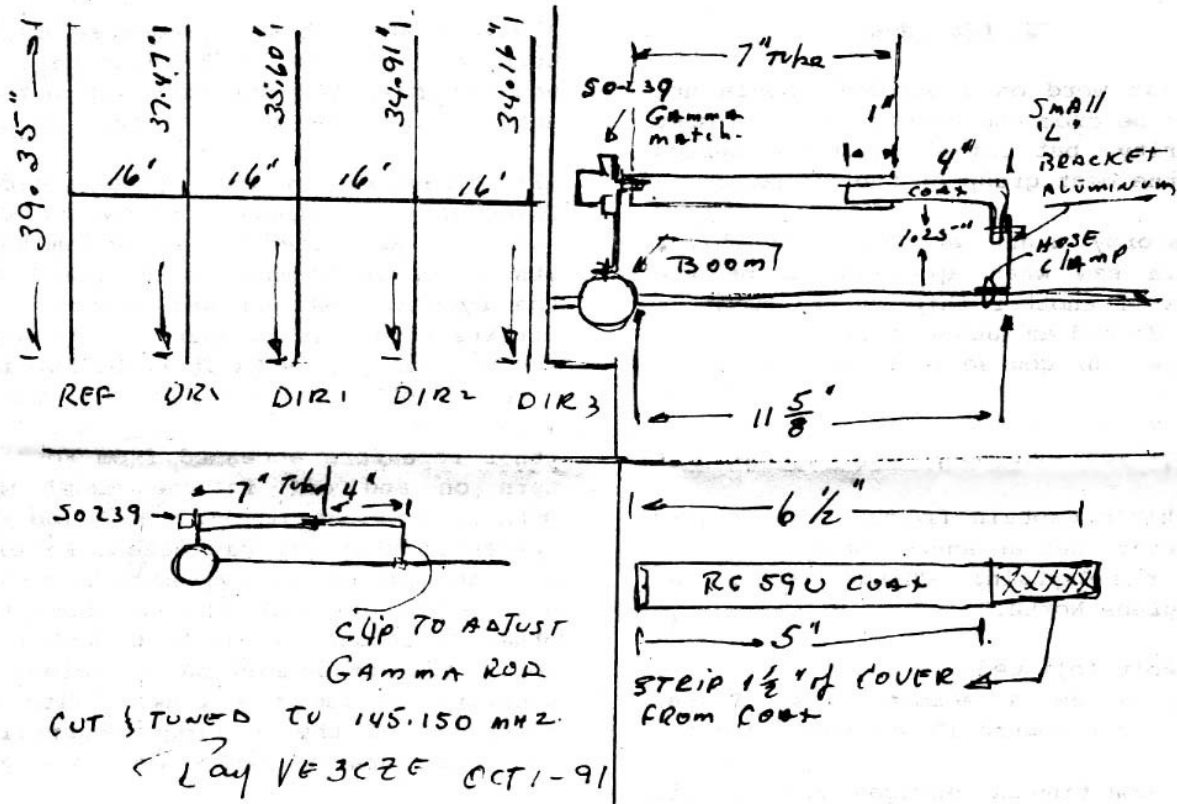 39.35"
37.47"
35.60"
34.91"
34.16"
16" 16" 16" 16"
REF DR1 DIR1 DIR2 DIR3
7" Tube
SO-239
Gamma
match.
1"
4"
SMAll
"L"
BRACKET
ALUMINUM
COAX
1.25"
HOSE
ClAMP
BOOM
11 5/8"
7" Tube 4"
SO239
CLIP TO ADJUST
GAMMA ROD
CUT & TUNED TO 145.150 MHZ.
VE3CZE OCT 1-91
6 1/2"
RG 59U COAX XXXXX
5"
STRIP 1 1/2" of COVER
FROM COAX